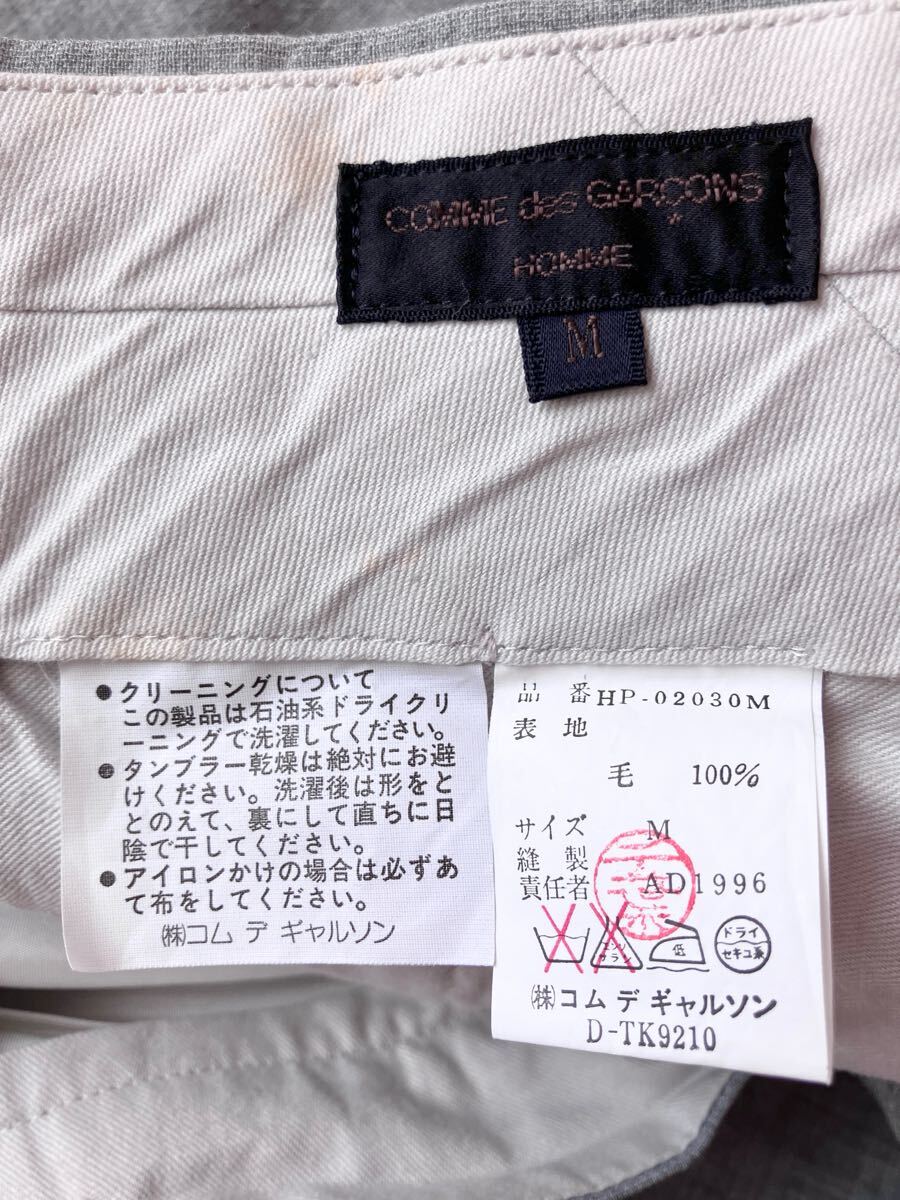 COMME des GARÇONS
HOMME
M
● クリーニングについて
この製品は石油系ドライクリ
ーニングで洗濯してください。
● タンブラー乾燥は絶対にお避
けください。洗濯後は形をと
とのえて、裏にして直ちに日
陰で干してください。
● アイロンかけの場合は必ずあ
て布をしてください。
㈱コム デ ギャルソン
品 番 HP-02030M
表 地
毛 100%
サイズ M
縫 製
責任者 AD1996
エンソ
サラシ
低
ドライ
セキユ系
㈱コム デ ギャルソン
D-TK9210